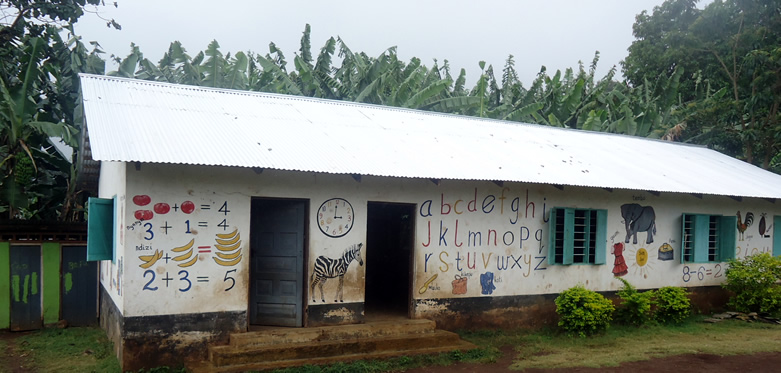 + = 4
3 + 1 = 4
ndizi
+ =
2 + 3 = 5
abcdefghi
jklmnopq
rstuvwxyz
8-6=2